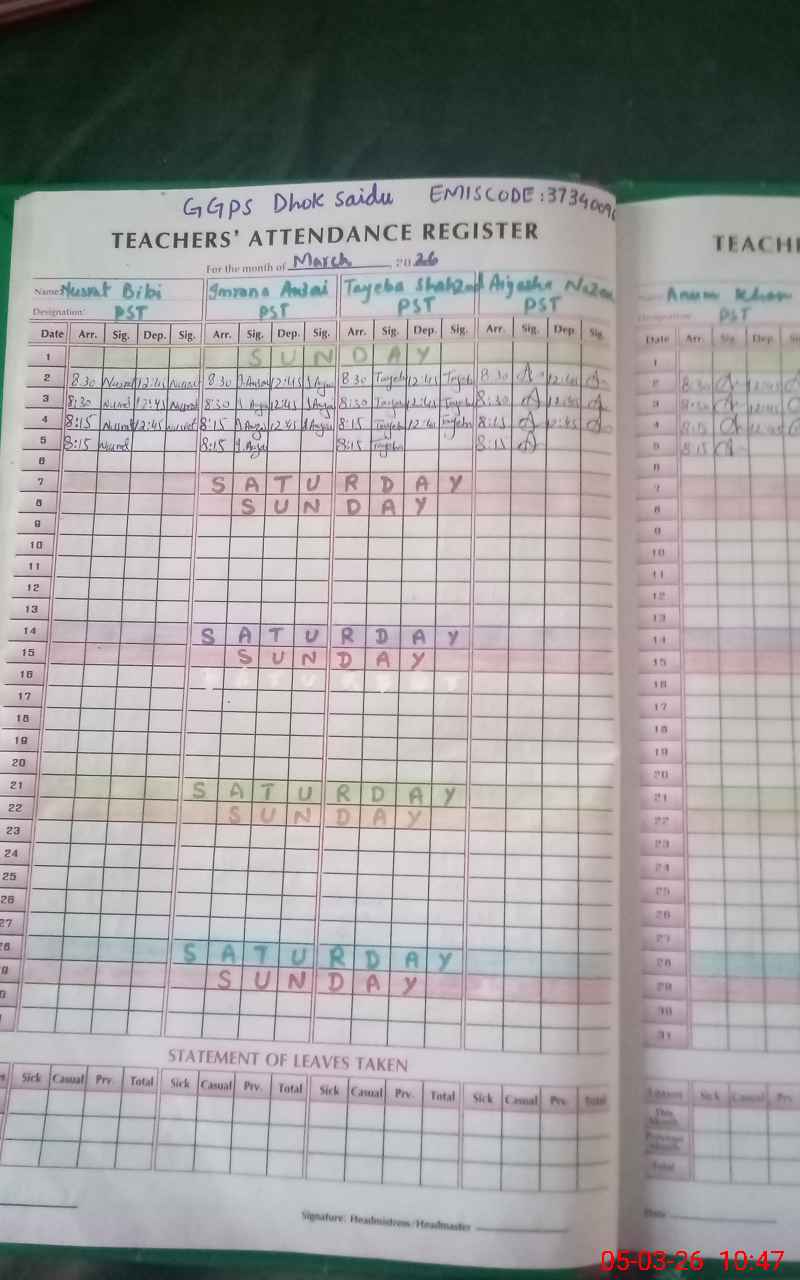 GGPS Dhok Saidu EMISCODE:3734009
TEACHERS' ATTENDANCE REGISTER
TEACH
For the month of March 2026
Name: Nusrat Bibi Imrana Ansai Tayeba Shahzad Aiyasha
Designation: PST PST PST PST
PST
Date Arr. Sig. Dep. Sig. Arr. Sig. Dep. Sig. Arr. Sig. Dep. Sig. Arr. Sig. Dep. Sig.
Date Arr. Sig. Dep
1 SUNDAY
2 8:30 Nusrat 12:45 Nusrat 8:30 12:45 8:30 Tayeba 12:45 Tayeba 8:30 A 12:45 A
3 8:30 Nusrat 12:45 Nusrat 8:30 12:45 8:30 Tayeba 12:45 Tayeba 8:30 A 12:45 A
4 8:15 Nusrat 12:45 Nusrat 8:15 12:45 8:15 Tayeba 12:45 Tayeba 8:15 A 12:45 A
5 8:15 Nusrat 8:15 8:15 Tayeba 8:15 A
6
7 SATURDAY
8 SUNDAY
9
10
11
12
13
14 SATURDAY
15 SUNDAY
16
17
18
19
20
21 SATURDAY
22 SUNDAY
23
24
25
26
27
SATURDAY
SUNDAY
1
2 8:30 A 12:45
3 8:30 A 12:45
4 8:15 A 12:45
5 8:15 A
6
7
8
9
10
11
12
13
14
15
16
17
18
19
20
21
22
23
24
25
26
27
28
29
30
31
STATEMENT OF LEAVES TAKEN
Sick Casual Prv. Total Sick Casual Prv. Total Sick Casual Prv. Total Sick Casual Prv. Total
Sick Casual Prv.
This Month
Previous Month
Total
Signature: Headmistress/Headmaster
Date
05-03-26 10:47